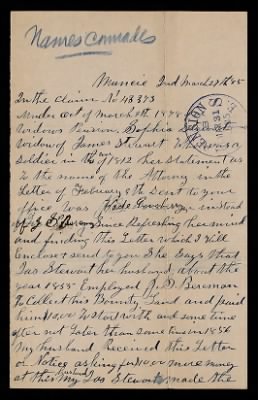 Names Comrades
Muncie Ind March 29th 85
In the claim No 48393
Under act of March 9th 1878
Widows Pension, Sophia
Widow of James Stewart Who was a
Soldier in the War of 1812 her statement as
To the name of the Attorney in the
Letter of February 9th sent to your
office was instead
of Since Refreshing her mind
and finding this Letter which I Will
Enclose & send to you She Says that
Jas Stewart her husband, about the
year 1855 Employed J. S. Bereman
To Collect this Bounty Land and paid
him 10.00 To start with and some time
after not Later than some time in 1856
My husband Received this Letter
or Notice asking for 10.00 more money
at this My husband Jas Stewart made the
PENSION